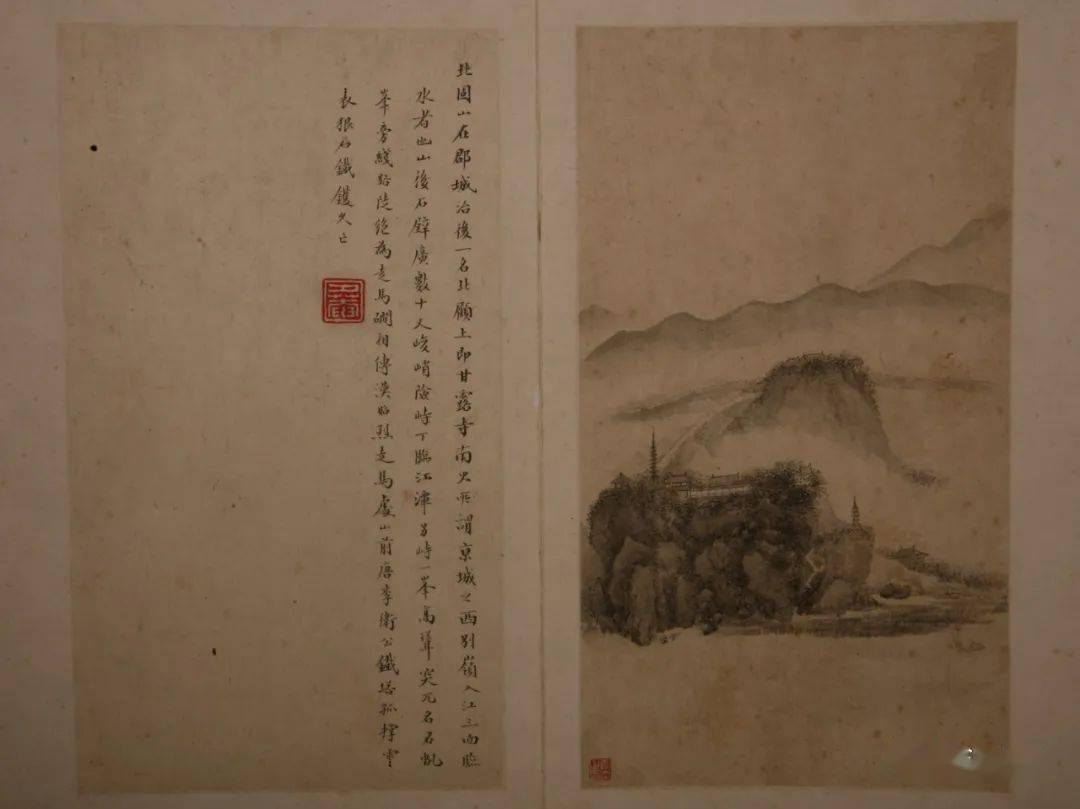 北固山在郡城治後一名北顧上即甘露寺南史所謂京城之西別嶺入江三面臨
水者也山後石壁廣數十丈峻峭險峙下臨江津另峙一峯高聳突兀名石帆
峯旁綫路陡絕為走馬磵相傳漢昭烈走馬處山前唐李衛公鐵塔孤撑雲
表狠石鐵鑊久亡